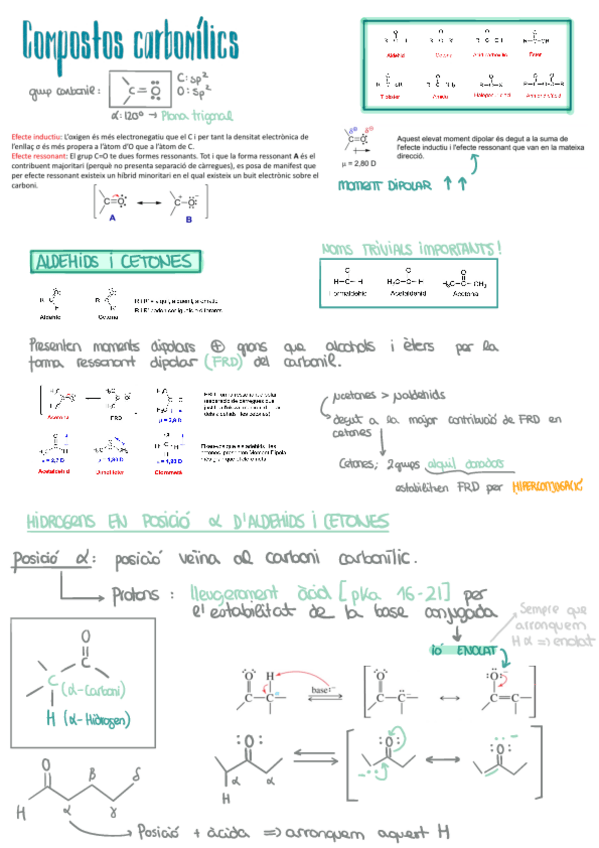 Compostos carbonílics
grup carbonil:
C: sp²
O: sp²
C=O
α: 120° → Plana trigonal
Aldehid
Cetona
Èster
Amida
Efecte inductiu: L'oxigen és més electronegatiu que el C i per tant la densitat electrònica de
l'enllaç σ és més propera a l'àtom d'O que a l'àtom de C.
Efecte ressonant: El grup C=O te dues formes ressonants. Tot i que la forma ressonant A és el
contribuent majoritari (perquè no presenta separació de càrregues), es posa de manifest que
per efecte ressonant existeix un híbrid minoritari en el qual existeix un buit electrònic sobre el
carboni.
A
B
μ = 2,80 D
Aquest elevat moment dipolar és degut a la suma de
l'efecte inductiu i l'efecte ressonant que van en la mateixa
direcció.
MOMENT DIPOLAR ↑ ↑
ALDEHIDS I CETONES
Aldehid
Cetona
NOMS TRIVIALS IMPORTANTS!
Formaldehid
Acetaldehid
Acetona
Presenten moments dipolars ⊕ grans que alcohols i èters per la
forma ressonant dipolar (FRD) del carbonil.
Acetona
FRD
Acetaldehid
μcetones > μaldehids
degut a la major contribució de FRD en
cetones
Cetones; 2 grups alquil donadors
estabilitzen FRD per HIPERCONJUGACIÓ
HIDROGENS EN POSICIÓ α D'ALDEHIDS I CETONES
Posició α: posició veïna al carboni carbonílic.
Protons: lleugerament àcid [pKa 16-21] per
l'estabilitat de la base conjugada
Sempre que
arranquem
H α => enolat
ió ENOLAT
O
C
C (α-Carboni)
H (α-Hidrogen)
base:⁻
H
α
α
O
H
α
β
γ
δ
Posició + àcida => arranquem aquest H